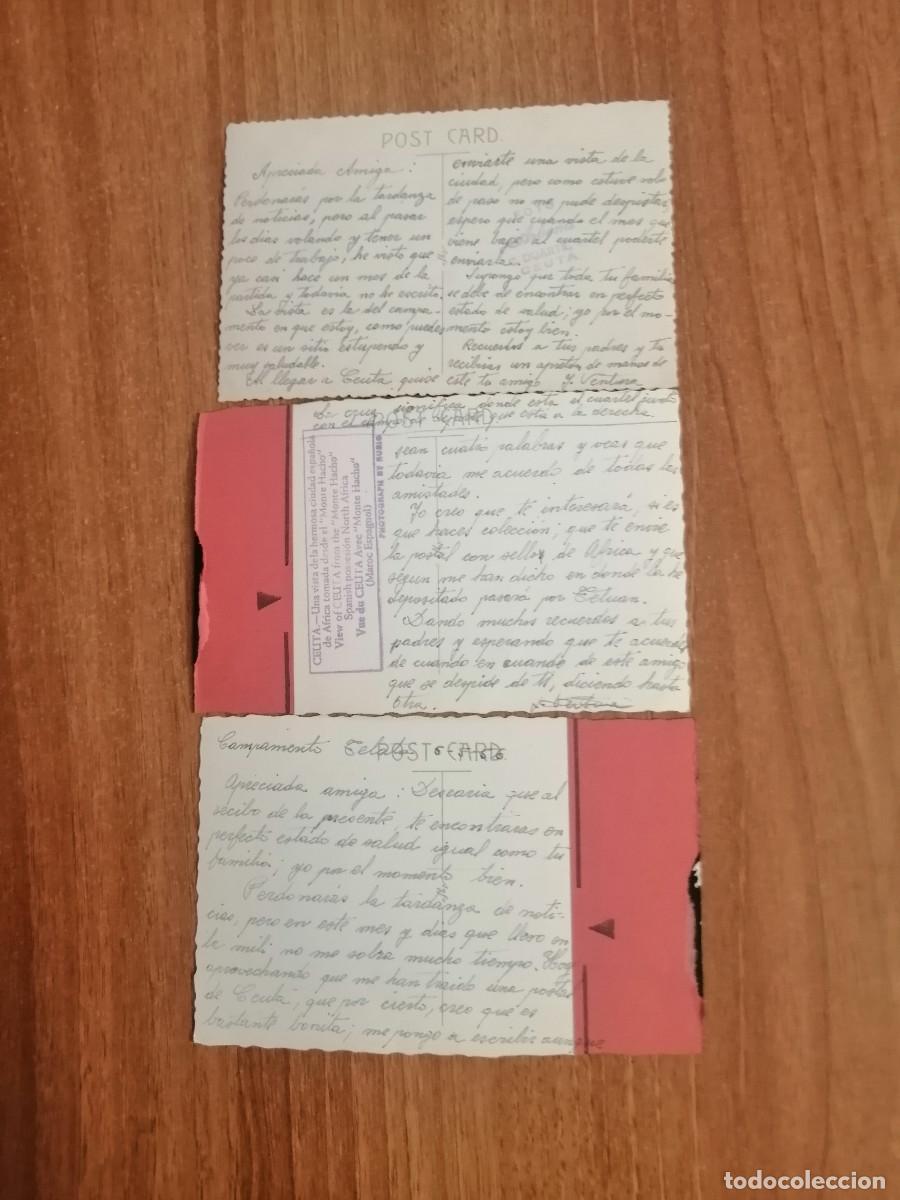 POST CARD
Apreciada Amiga:
Perdonarás por la tardanza
de noticias, pero al pasar
los dias volando y tener un
poco de trabajo, he visto que
ya casi hace un mes de la
partida y todavia no he escrito.
La vista es la del campa-
mento en que estoy, como puedes
ver es un sitio estupendo y
muy saludable.
Al llegar a Ceuta, quise
enviarte una vista de la
ciudad, pero como estuve solo
de paso no me pude despistar,
espero que cuando el mes que
viene baje al cuartel poderte
enviarla.
Supongo que toda tu familia
se debe de encontrar en perfecto
estado de salud; yo por el mo-
mento estoy bien.
Recuerdos a tus padres y tu
recibiras un apretón de manos de
este tu amigo J. Ventura
CEUTA
La cruz significa donde esta el cuartel junto
con el que esta a la derecha.
POST CARD
CEUTA.—Una vista de la hermosa ciudad española
de Africa tomada desde el "Monte Hacho"
View of CEUTA from the "Monte Hacho"
Spanish possesión North Africa
Vue du CEUTA Avec "Monte Hacho"
(Maroc Espagnol)
PHOTOGRAPH BY RUBIO
sean cuatro palabras y veas que
todavia me acuerdo de todas las
amistades.
Yo creo que te interesará, si es
que haces colección; que te envie
la postal con sellos de Africa y que
segun me han dicho en donde la he
depositado pasará por Tetuan.
Dando muchos recuerdos a tus
padres y esperando que te acuerdes
de cuando en cuando de este amigo
que se despide de ti, diciendo hasta
otra. Ventura
POST CARD
Campamento 6-5-66
Apreciada amiga: Desearia que al
recibo de la presente te encontraras en
perfecto estado de salud igual como tu
familia; yo por el momento bien.
Perdonarás la tardanza de noti-
cias, pero en este mes y dias que llevo en
la mili no me sobra mucho tiempo. Hoy
aprovechando que me han traido una postal
de Ceuta, que por cierto, creo que es
bastante bonita; me pongo a escribir aunque
todocoleccion